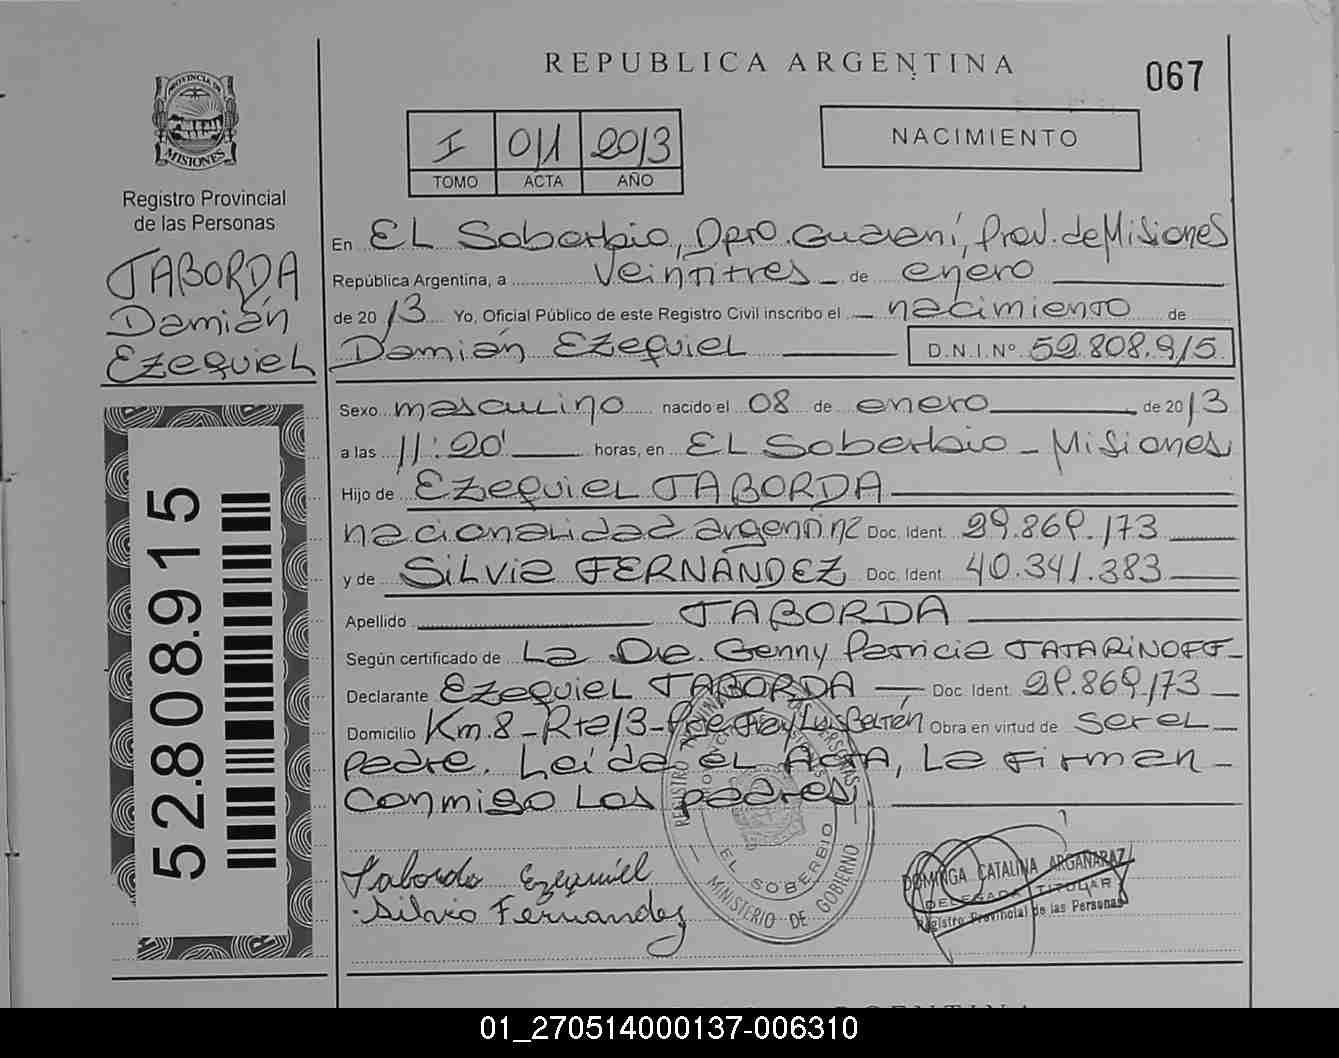 REPUBLICA ARGENTINA
067
PROVINCIA DE
MISIONES
Registro Provincial
de las Personas
TABORDA
Damián
Ezequiel
52.808.915
I 011 2013
TOMO ACTA AÑO
NACIMIENTO
En El Soberbio, Dpto. Guaraní, Prov. de Misiones
República Argentina, a Veintitres de enero
de 2013 Yo, Oficial Público de este Registro Civil inscribo el nacimiento de
Damián Ezequiel D.N.I.Nº 52.808.915
Sexo masculino nacido el 08 de enero de 2013
a las 11:20' horas, en El Soberbio - Misiones
Hijo de Ezequiel TABORDA
nacionalidad argentina Doc. Ident. 29.869.173
y de Silvia FERNÁNDEZ Doc. Ident. 40.341.383
Apellido TABORDA
Según certificado de La Dra. Genny Patricia TATARINOFF
Declarante Ezequiel TABORDA, Doc. Ident. 29.869.173
Domicilio Km.8-Rta13-Pje Fray Luis Beltrán Obra en virtud de ser el
padre. Leída el Acta, la firman
conmigo los padres.
Taborda Ezequiel
Silvia Fernandez
EL SOBERBIO
MINISTERIO DE GOBIERNO
DOMINGA CATALINA ARGAÑARAZ
DELEGADA TITULAR
Registro Provincial de las Personas
01_270514000137-006310